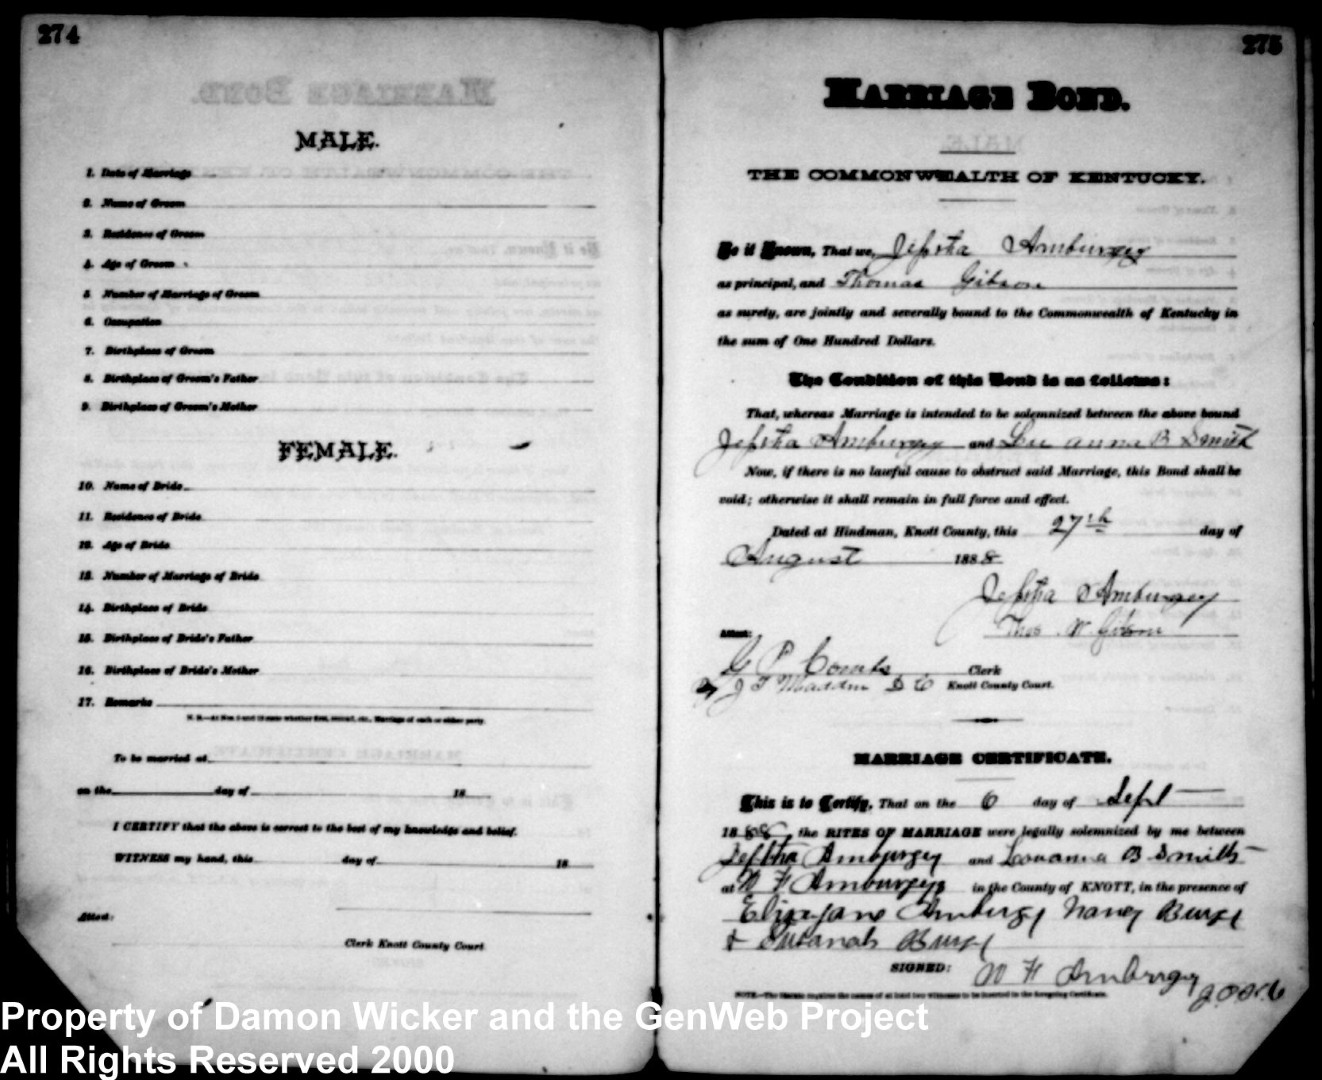 274
MALE.
1. Date of Marriage
2. Name of Groom
3. Residence of Groom
4. Age of Groom
5 Number of Marriage of Groom
6. Occupation
7. Birthplace of Groom
8. Birthplace of Groom's Father
9. Birthplace of Groom's Mother
FEMALE.
10. Name of Bride
11. Residence of Bride
12. Age of Bride
13. Number of Marriage of Bride
14. Birthplace of Bride
15. Birthplace of Bride's Father
16. Birthplace of Bride's Mother
17. Remarks
To be married at
on the day of 18
I CERTIFY that the above is correct to the best of my knowledge and belief.
WITNESS my hand, this day of 18
Attest:
Clerk Knott County Court
275
MARRIAGE BOND.
THE COMMONWEALTH OF KENTUCKY.
Be it Known, That we, Jeptha Amburgey
as principal, and Thomas Gibson
as surety, are jointly and severally bound to the Commonwealth of Kentucky in
the sum of One Hundred Dollars.
The Condition of this Bond is as follows:
That, whereas Marriage is intended to be solemnized between the above bound
Jeptha Amburgey and Lou anna B Smith
Now, if there is no lawful cause to obstruct said Marriage, this Bond shall be
void; otherwise it shall remain in full force and effect.
Dated at Hindman, Knott County, this 27th day of
August 1888
Jeptha Amburgey
Thos. W. Gibson
Attest:
G P Combs Clerk
By J T Maddin D C Knott County Court.
MARRIAGE CERTIFICATE.
This is to Certify, That on the 6 day of Sept
1888 the RITES OF MARRIAGE were legally solemnized by me between
Jeptha Amburgey and Louanna B Smith
at W H Amburgeys in the County of KNOTT, in the presence of
Eliza Jane Amburgy Nancy Burgy
& Susanah Burgy
SIGNED: W H Amburgey
Property of Damon Wicker and the GenWeb Project
All Rights Reserved 2000